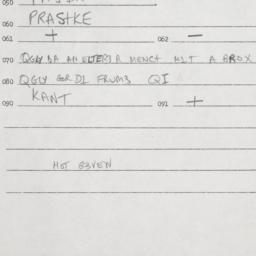 050
060 PRASTKE
061 + 062 –
070 QGLY BA AN ELTERJR MENCH MIT A BROX
080 QGLY GRDL FRUMB QI
090 KANT 091 +
HOT G3VEN